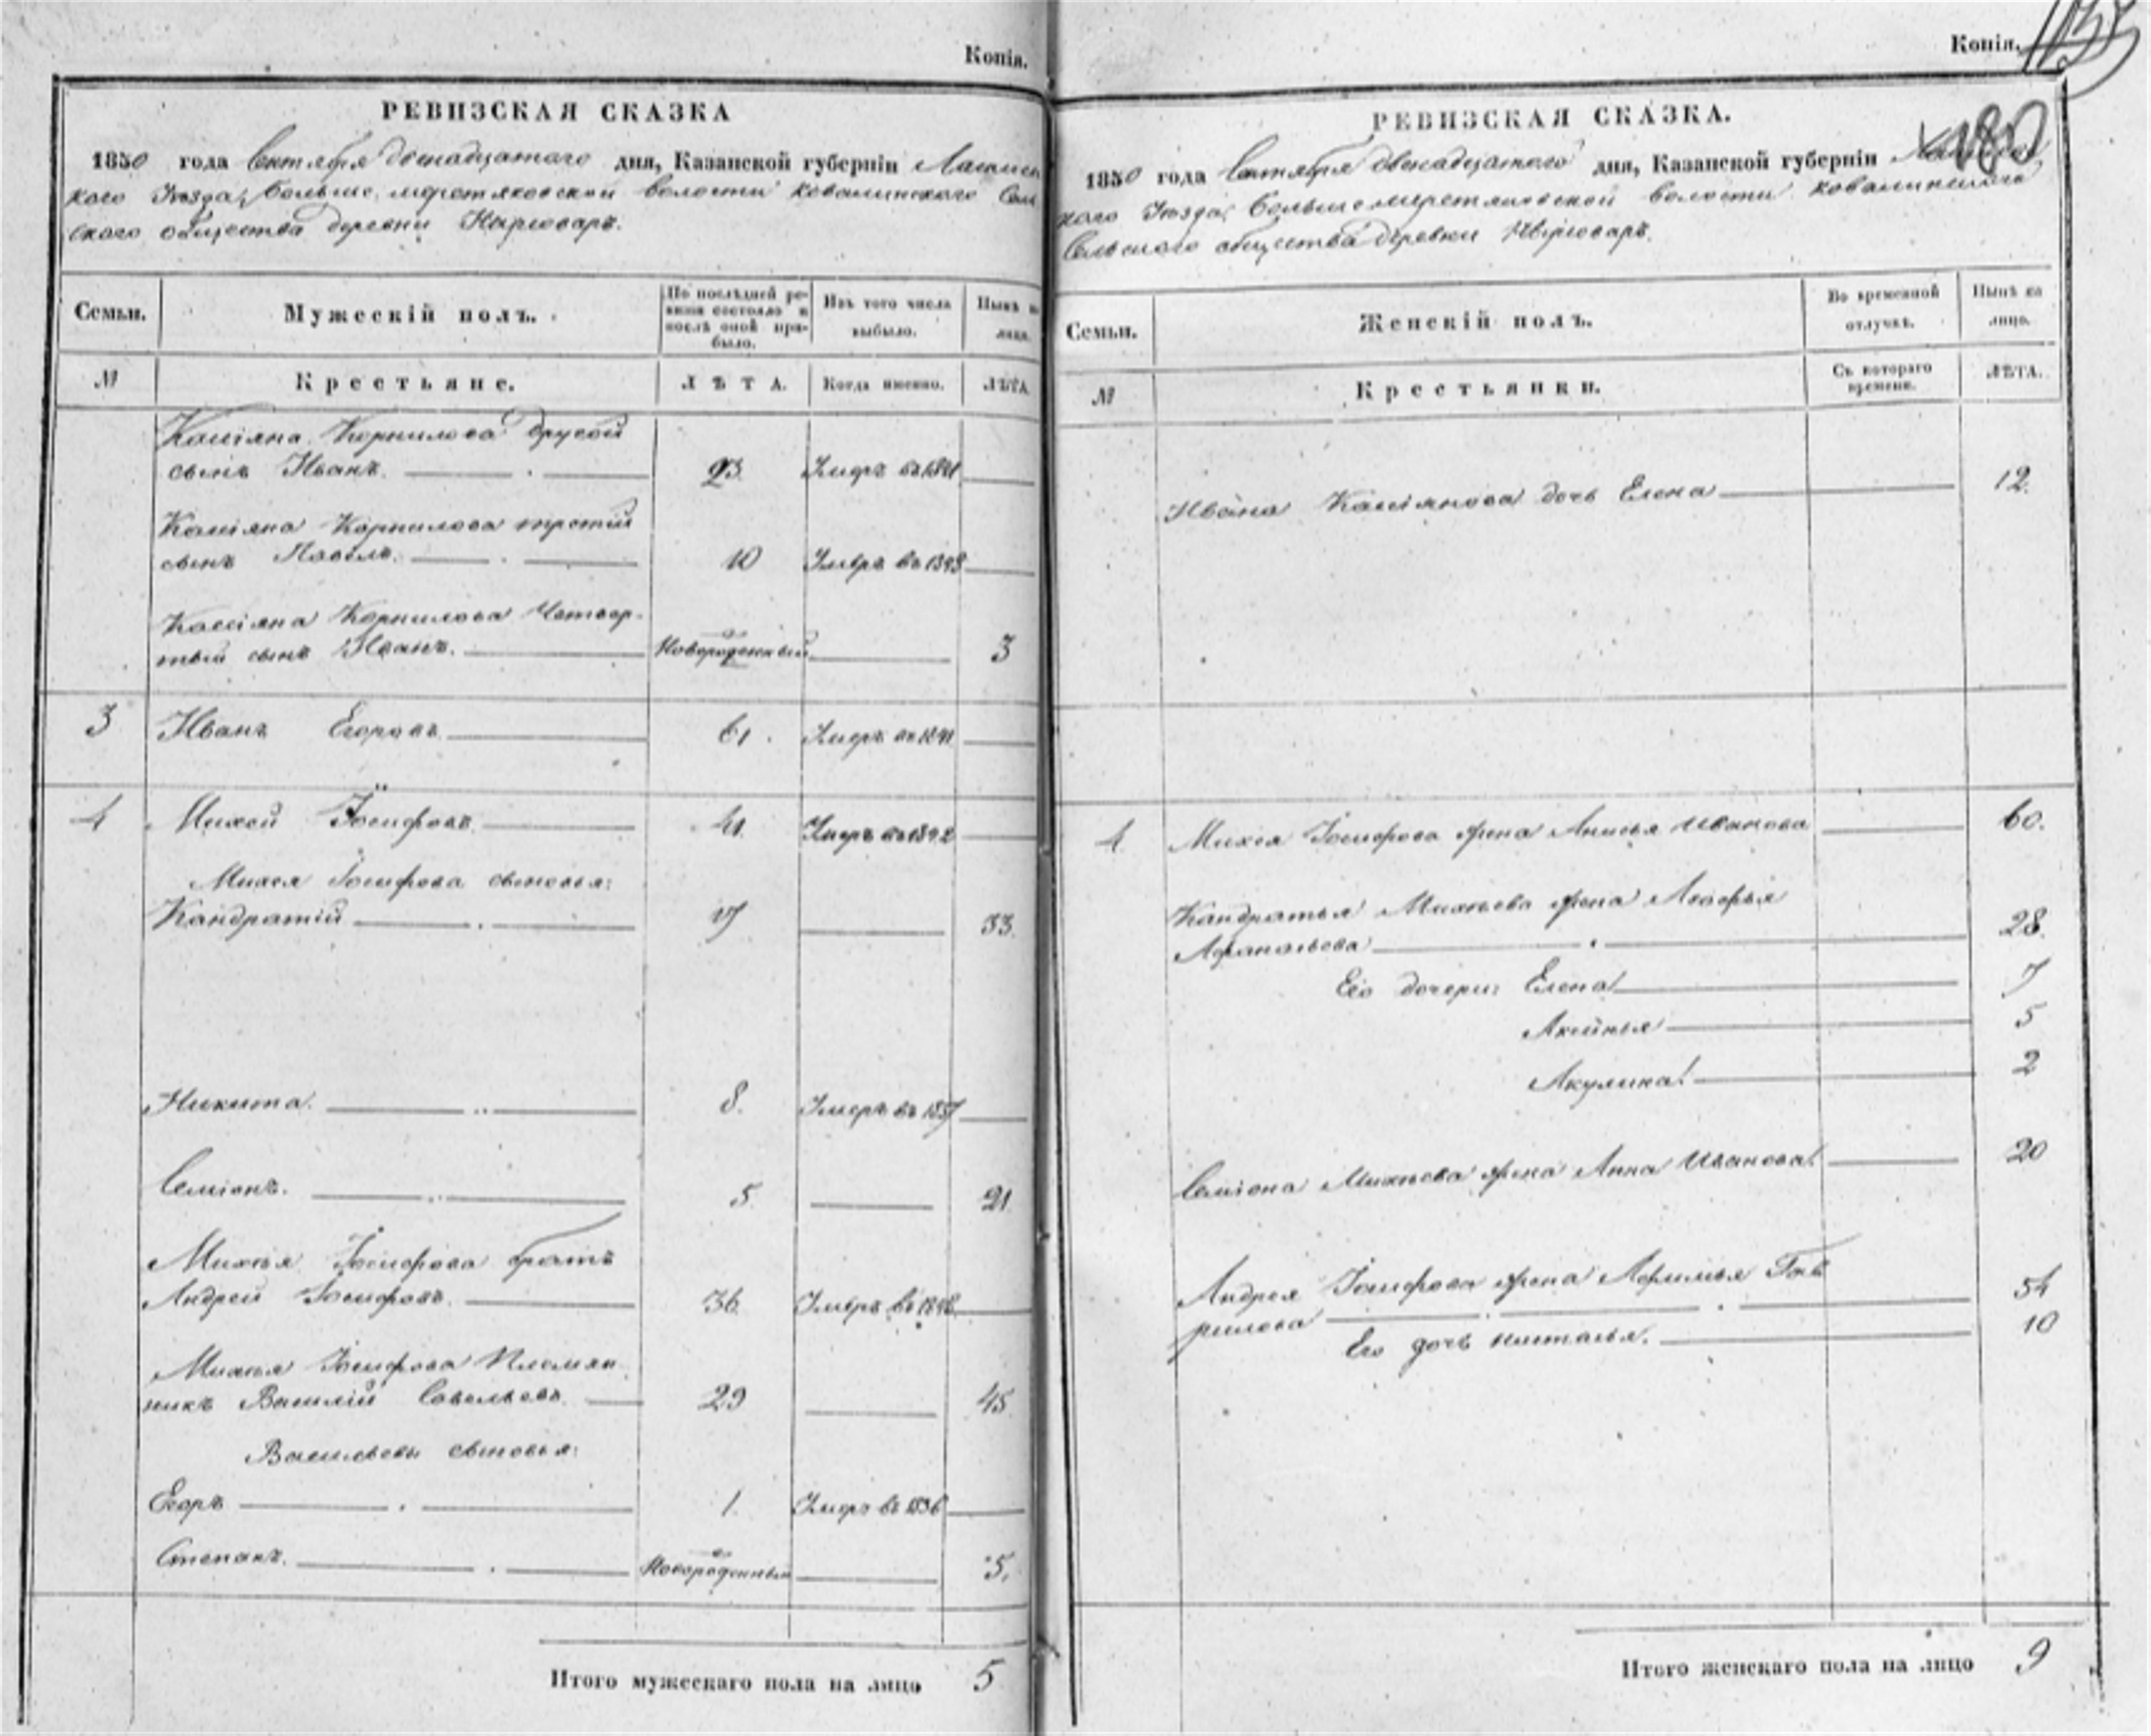 Копія.
РЕВИЗСКАЯ СКАЗКА
1850 года Сентября двенадцатого дня, Казанской губерніи Лаишев
кого Уѣзда, Больше меретяковской волости Ковалинского Сель
ского общества деревни Нырсоваръ.
Семьи.
Мужескій полъ.
По послѣдней ре-
визіи состояло и
послѣ оной при-
было.
Изъ того числа
выбыло.
Нынѣ на
лицо.
№
Крестьяне.
ЛѢТА.
Когда именно.
ЛѢТА.
Касіяна Корнилова другой
сынъ Иванъ. 23. Умеръ въ 1841
Касіяна Корнилова третій
сынъ Павелъ. 10 Умеръ въ 1843
Касіяна Корнилова Четвер-
тый сынъ Иванъ. Новорожденный 3
3 Иванъ Егоровъ 61. Умеръ въ 1841
4 Михей Іосифовъ. 41. Умеръ въ 1842
Михея Іосифова сыновья:
Кандратій 17 33.
Никита. 8. Умеръ въ 1837
Семіонъ. 5. 21.
Михея Іосифова братъ
Андрей Іосифовъ. 36. Умеръ въ 1848.
Михея Іосифова Племян
никъ Василій Савельевъ 29 45.
Васильевы сыновья:
Егоръ 1. Умеръ въ 1836
Степанъ. Новорожденный 5.
Итого мужескаго пола на лицо 5
Копія.
180
РЕВИЗСКАЯ СКАЗКА.
1850 года Сентября двенадцатого дня, Казанской губерніи
кого Уѣзда, Больше меретяковской волости Ковалинского
Сельского общества деревни Нырсоваръ.
Семьи.
Женскій полъ.
Во временной
отлучкѣ.
Нынѣ на
лицо.
№
Крестьянки.
Съ котораго
времени.
ЛѢТА.
Ивана Касіянова дочь Елена 12.
4 Михея Іосифова жена Анисья Иванова 60.
Кандратья Михѣева жена
Афанасьева 28.
Его дочери: Елена 7
Аксинья 5
Акулина 2
Семіона Михѣева жена Анна Иванова 20
Андрея Іосифова жена Афимья Гав
рилова 54
Его дочь Наталья. 10
Итого женскаго пола на лицо 9